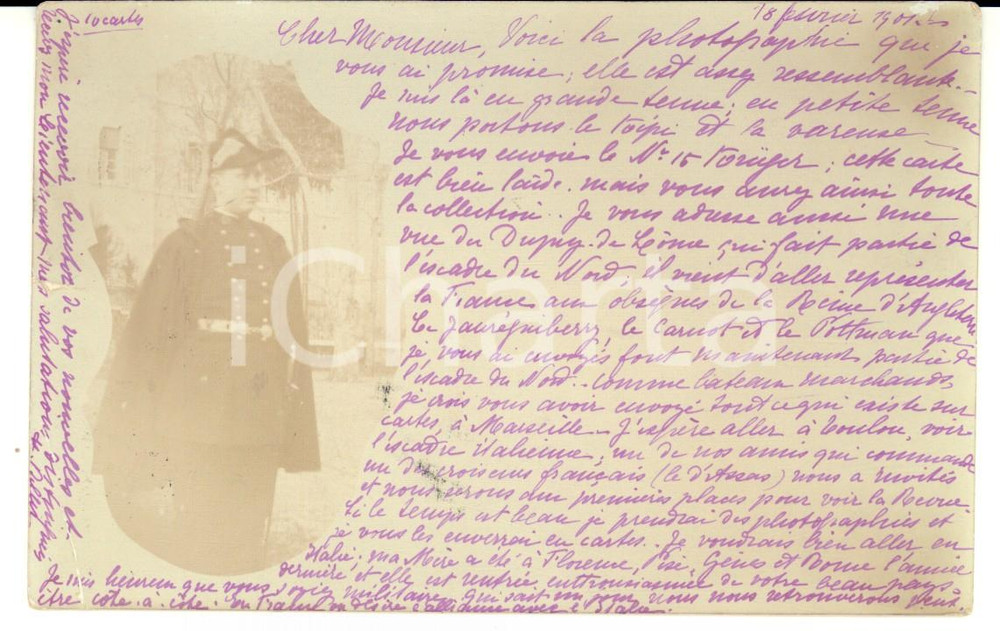 18 février 1901
Cher Monsieur, Voici la photographie que je
vous ai promise; elle est assez ressemblante.
Je suis là en grande tenue; en petite tenue
nous portons le Képi et la vareuse
Je vous envoie le No 15 Krüger; cette carte
est bien laide, mais vous aurez ainsi toute
la collection. Je vous adresse aussi une
vue du Dupuy-de-Lôme qui fait partie de
l'escadre du Nord, il vient d'aller représenter
la France aux obsèques de la Reine d'Angleterre
Le Jauréguiberry le Carnot et le Pothuau que
je vous ai envoyés font maintenant partie de
l'escadre du Nord. Comme bateaux marchands,
je crois vous avoir envoyé tout ce qui existe sur
cartes, à Marseille. J'espère aller à Toulon, voir
l'escadre italienne; un de nos amis qui commande
un des croiseurs français (le d'Assas) nous a invités
et nous serons aux premières places pour voir la Revue
Si le temps est beau je prendrai des photographies et
je vous les enverrai en cartes. Je voudrais bien aller en
Italie; ma Mère a été à Florence, Pise, Gênes et Rome l'année
dernière et elle est rentrée enthousiasmée de votre beau pays
Je suis heureux que vous soyez militaire, qui sait un jour nous nous retrouverons peut-
être côte-à-côte. on désire l'alliance avec l'Italie.
10 cartes
J'espère recevoir bientôt de vos nouvelles et
mon Lieutenant, mes salutations
iCharta